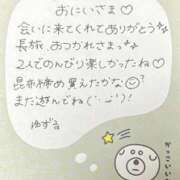 おにいさま♡
会いに来てくれてありがとう
長旅、おつかれさまっ
2人でのんびり楽しかったね♡
昆布締め買えたかな
また遊んでね
ゆずき